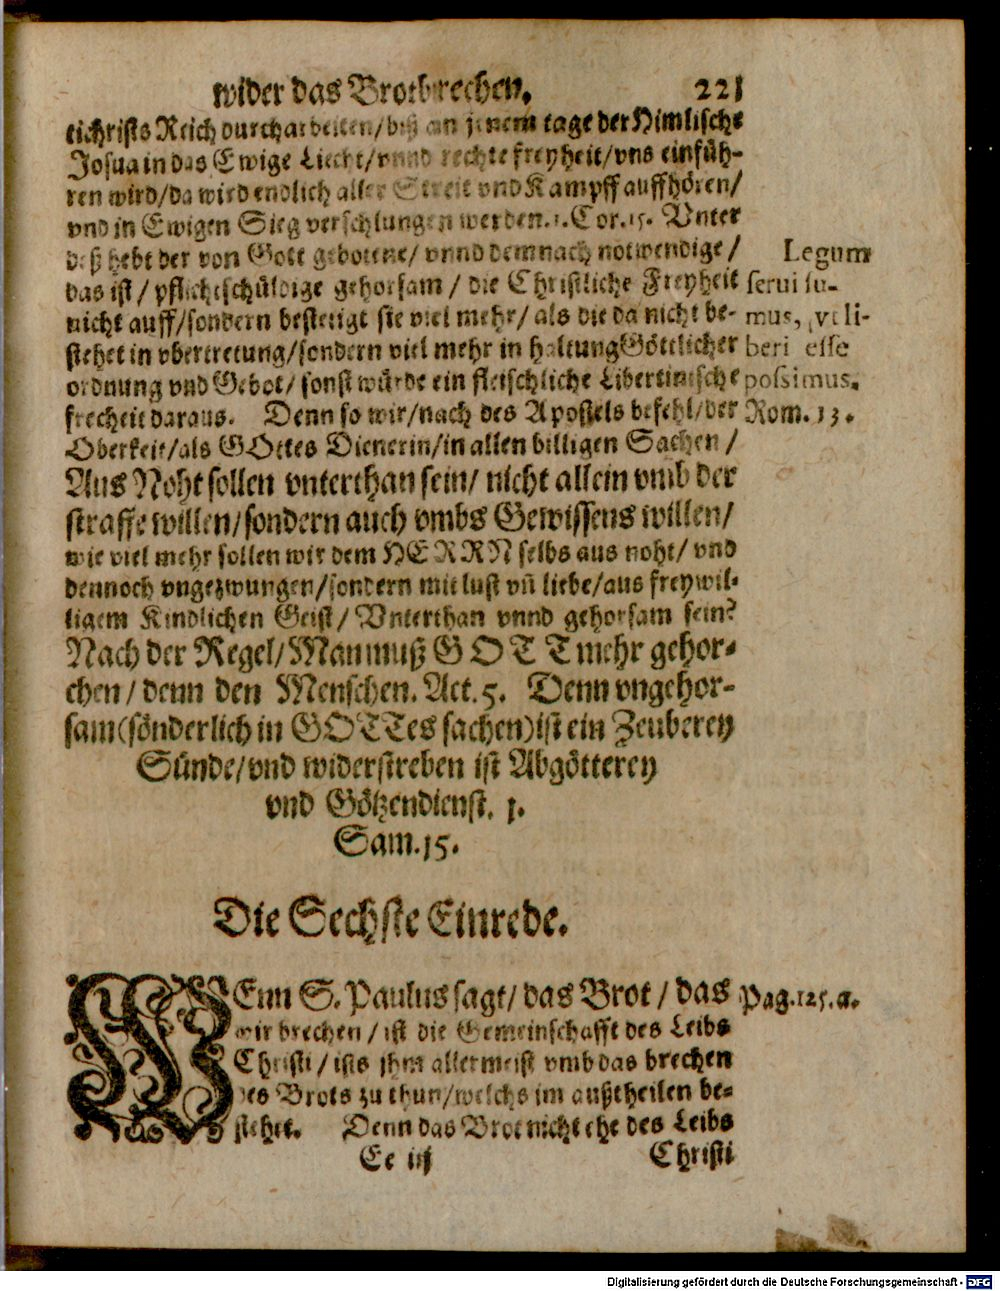 wider das Brotbrechen. 221
tichrists Reich durcharbeiten/biß an jenem tage der Himlische
Josua in das Ewige Liecht/vnnd rechte freyheit/vns einfüh-
ren wird/da wird endlich aller Streit vnd Kampff auffhören/
vnd in Ewigen Sieg verschlungen werden. 1. Cor. 15. Vnter
deß hebt der von Gott gebotene/vnnd demnach notwendige/
das ist/pflichtschüldige gehorsam/die Christliche Freyheit
nicht auff/sondern bestetigt sie viel mehr/als die da nicht be-
stehet in vbertretung/sondern viel mehr in haltung Göttlicher
ordnung vnd Gebot/sonst würde ein fleischliche Libertinische
frecheit daraus. Denn so wir/nach des Apostels befehl/der
Oberkeit/als GOttes Dienerin/in allen billigen Sachen/
Aus Noht sollen vnterthan sein/nicht allein vmb der
straffe willen/sondern auch vmbs Gewissens willen/
wie viel mehr sollen wir dem HERRN selbs aus noht/vnd
dennoch vngezwungen/sondern mit lust vñ liebe/aus freywil-
ligem Kindlichen Geist/Vnterthan vnnd gehorsam sein?
Nach der Regel/Man muß GOTT mehr gehor-
chen/denn den Menschen. Act. 5. Denn vngehor-
sam (sönderlich in GOTTes sachen) ist ein Zeuberey
Sünde/vnd widerstreben ist Abgötterey
vnd Götzendienst. 1.
Sam. 15.
Legum
serui su-
mus, vt li-
beri esse
possimus.
Rom. 13.
Die Sechste Einrede.
WEnn S. Paulus sagt/das Brot/das
wir brechen/ist die Gemeinschafft des Leibs
Christi/ists ihm allermeist vmb das brechen
des Brots zu thun/welchs im außtheilen be-
stehet. Denn das Brot nicht ehe des Leibs
Pag. 125. a.
Ee iij Christi
Digitalisierung gefördert durch die Deutsche Forschungsgemeinschaft - DFG